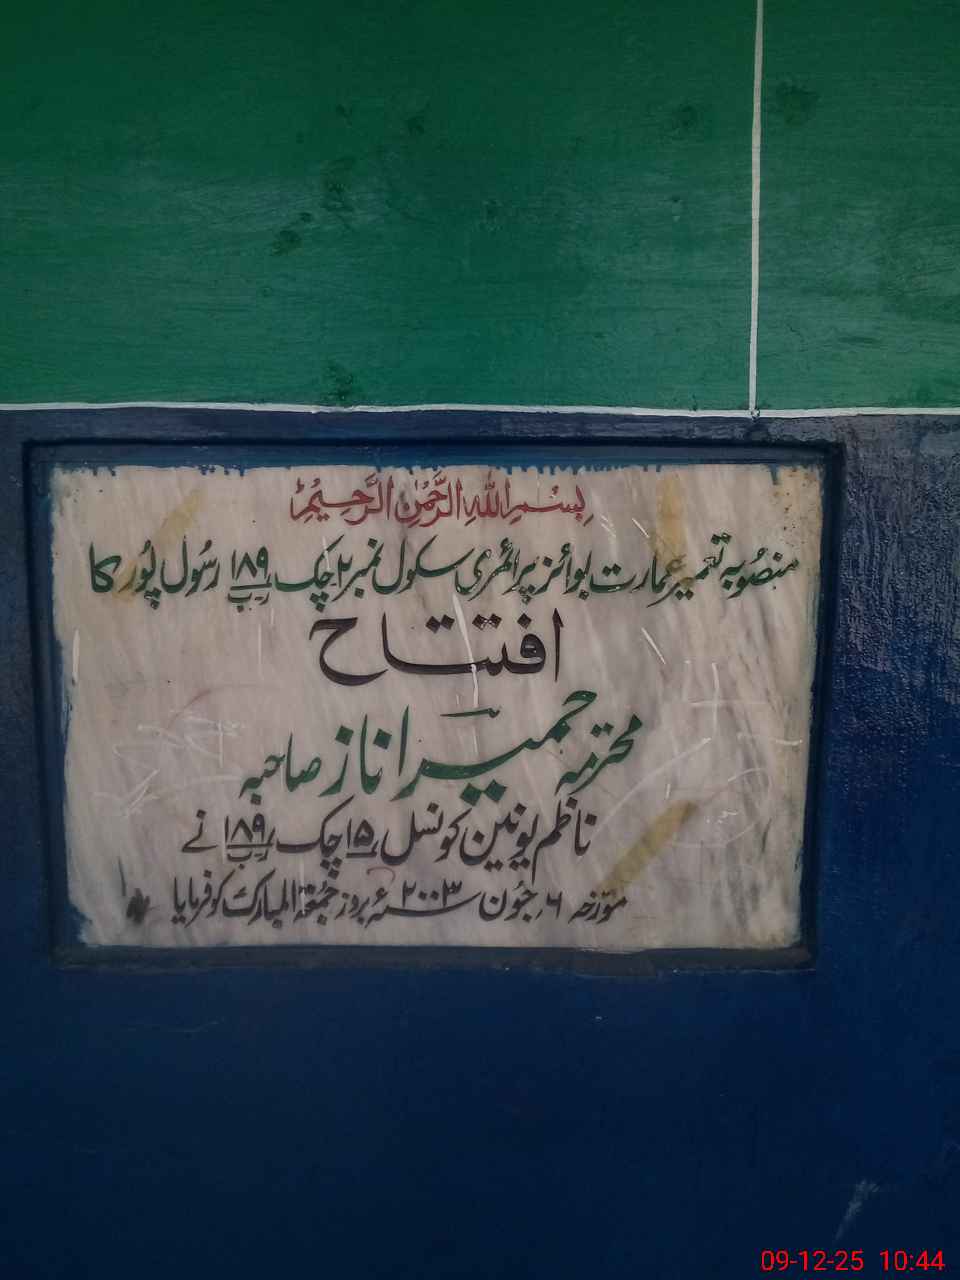 بِسْمِ اللّٰهِ الرَّحْمٰنِ الرَّحِیْمِ
منصُوبہ تعمیر عمارت بوائز پرائمری سکول نمبر ۲ چک ۱۸۹ ر-ب رسُول پُور کا
افتتاح
محترمہ حمیرا ناز صاحبہ
ناظم یونین کونسل ۱۵ چک ۱۸۹ ر-ب نے
مورٔخہ ۶؍ جُون ۲۰۰۳ء بروز جُمعۃ المبارک کو فرمایا
09-12-25 10:44